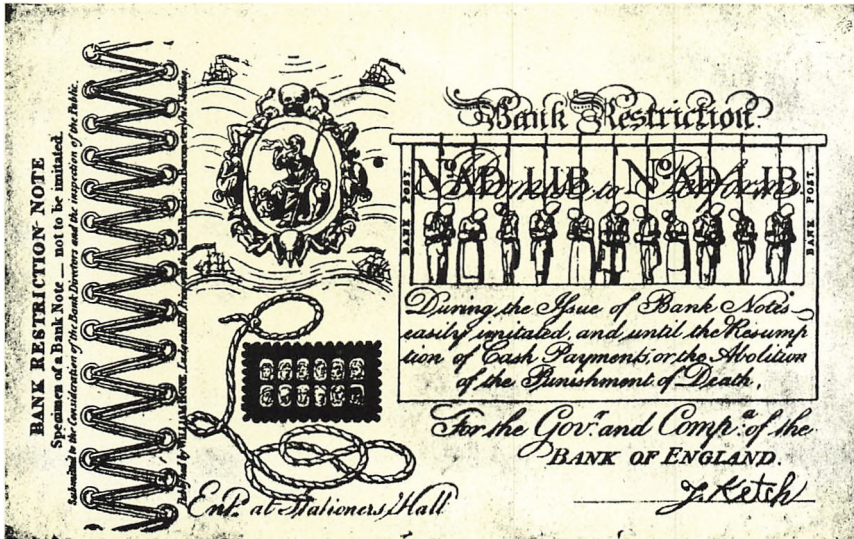 BANK RESTRICTION NOTE
Specimen of a Bank Note — not to be imitated.
Submitted to the Consideration of the Bank Directors and the inspection of the Public.
Bank Restriction.
No AD. LIB No AD. LIB
I Promise to Perform
BANK POST.
BANK POST.
During the Issue of Bank Notes
easily imitated, and until the Resump
tion of Cash Payments, or the Abolition
of the Punishment of Death,
For the Govr. and Compa. of the
BANK OF ENGLAND.
J. Ketch
Entd. at Stationers Hall